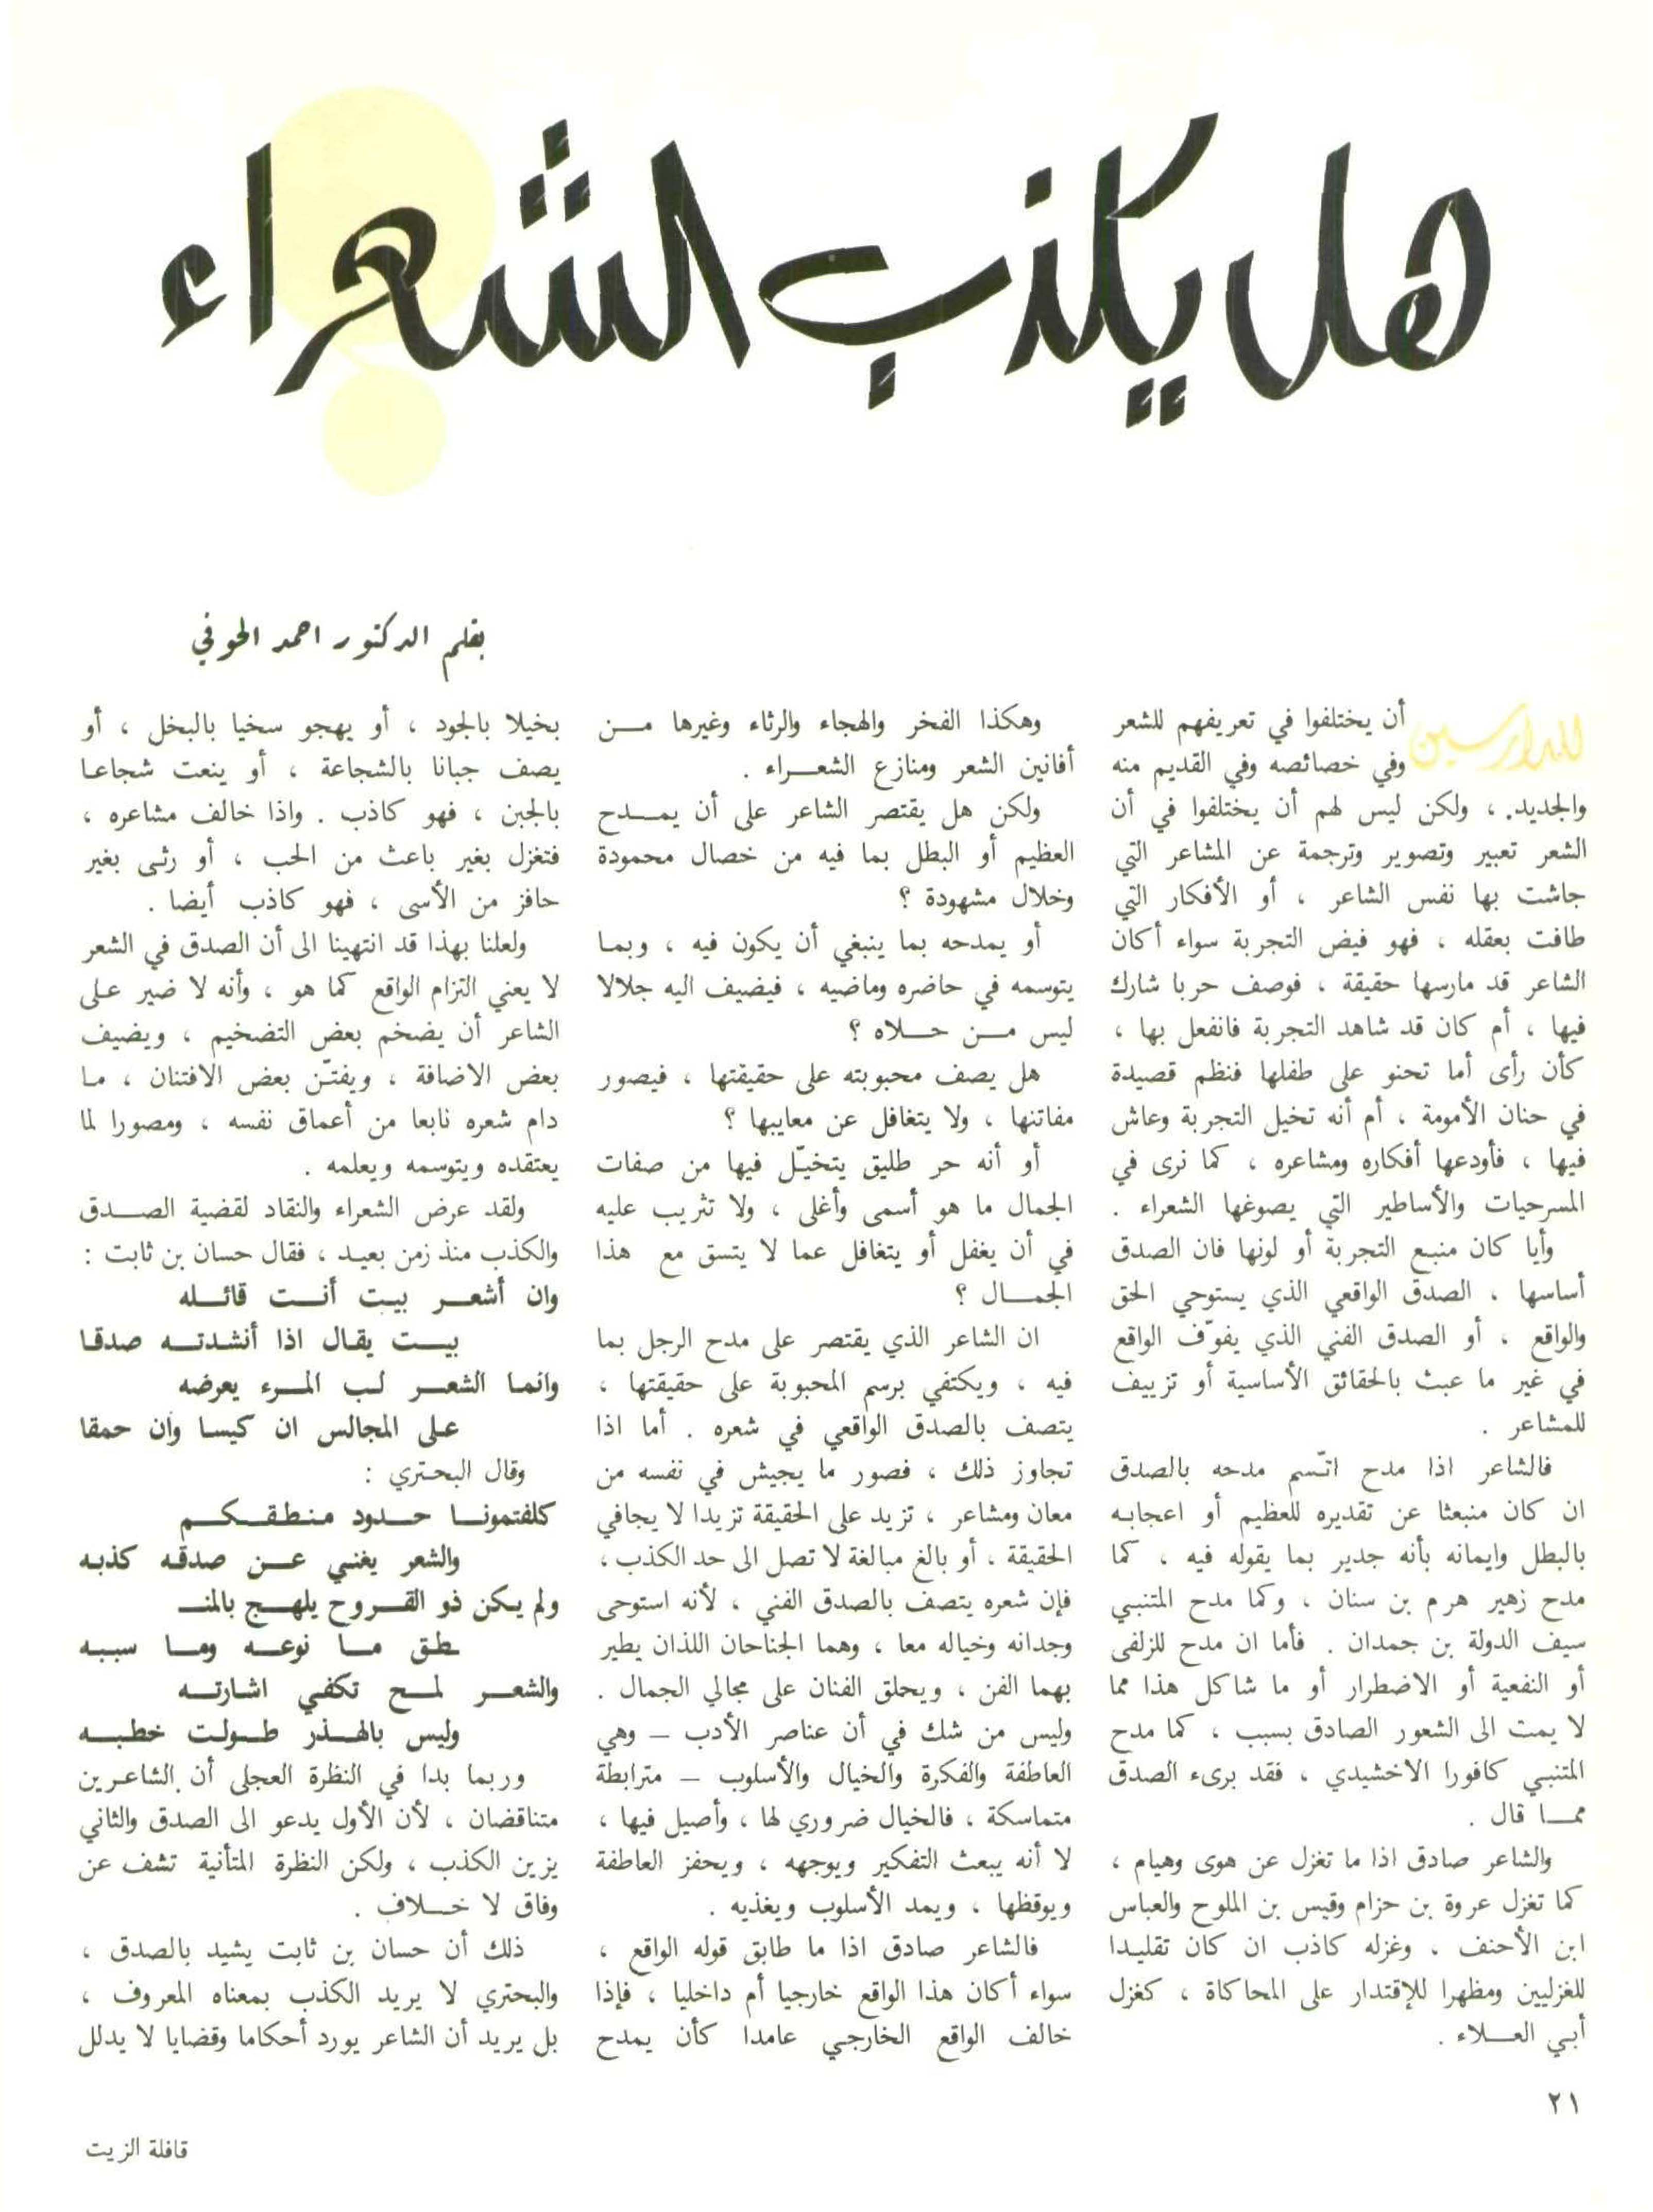 هل يكذب الشعراء
بقلم الدكتور احمد الحوفي
للدارسين أن يختلفوا في تعريفهم للشعر
وفي خصائصه وفي القديم منه
والجديد . ، ولكن ليس لهم أن يختلفوا في أن
الشعر تعبير وتصوير وترجمة عن المشاعر التي
جاشت بها نفس الشاعر ، أو الأفكار التي
طافت بعقله ، فهو فيض التجربة سواء أكان
الشاعر قد مارسها حقيقة ، فوصف حربا شارك
فيها ، أم كان قد شاهد التجربة فانفعل بها ،
كأن رأى أما تحنو على طفلها فنظم قصيدة
في حنان الأمومة ، أم أنه تخيل التجربة وعاش
فيها ، فأودعها أفكاره ومشاعره ، كما نرى في
المسرحيات والأساطير التي يصوغها الشعراء .
وأيا كان منبع التجربة أو لونها فان الصدق
أساسها ، الصدق الواقعي الذي يستوحي الحق
والواقع ، أو الصدق الفني الذي يفوّف الواقع
في غير ما عبث بالحقائق الأساسية أو تزييف
للمشاعر .
فالشاعر اذا مدح اتّسم مدحه بالصدق
ان كان منبعثا عن تقديره للعظيم أو اعجابه
بالبطل وايمانه بأنه جدير بما يقوله فيه ، كما
مدح زهير هرم بن سنان ، وكما مدح المتنبي
سيف الدولة بن حمدان . فأما ان مدح للزلفى
أو النفعية أو الاضطرار أو ما شاكل هذا مما
لا يمت الى الشعور الصادق بسبب ، كما مدح
المتنبي كافورا الاخشيدي ، فقد برىء الصدق
ممــا قال .
والشاعر صادق اذا ما تغزل عن هوى وهيام ،
كما تغزل عروة بن حزام وقيس بن الملوح والعباس
ابن الأحنف ، وغزله كاذب ان كان تقليدا
للغزليين ومظهرا للإقتدار على المحاكاة ، كغزل
أبي العــلاء .
وهكذا الفخر والهجاء والرثاء وغيرها مــن
أفانين الشعر ومنازع الشعــراء .
ولكن هل يقتصر الشاعر على أن يمــدح
العظيم أو البطل بما فيه من خصال محمودة
وخلال مشهودة ؟
أو يمدحه بما ينبغي أن يكون فيه ، وبما
يتوسمه في حاضره وماضيه ، فيضيف اليه جلالا
ليس مــن حــلاه ؟
هل يصف محبوبته على حقيقتها ، فيصور
مفاتنها ، ولا يتغافل عن معايبها ؟
أو أنه حر طليق يتخيّل فيها من صفات
الجمال ما هو أسمى وأغلى ، ولا تثريب عليه
في أن يغفل أو يتغافل عما لا يتسق مع هذا
الجمــال ؟
ان الشاعر الذي يقتصر على مدح الرجل بما
فيه ، ويكتفي برسم المحبوبة على حقيقتها ،
يتصف بالصدق الواقعي في شعره . أما اذا
تجاوز ذلك ، فصور ما يجيش في نفسه من
معان ومشاعر ، تزيد على الحقيقة تزيدا لا يجافي
الحقيقة ، أو بالغ مبالغة لا تصل الى حد الكذب ،
فإن شعره يتصف بالصدق الفني ، لأنه استوحى
وجدانه وخياله معا ، وهما الجناحان اللذان يطير
بهما الفن ، ويحلق الفنان على مجالي الجمال .
وليس من شك في أن عناصر الأدب – وهي
العاطفة والفكرة والخيال والأسلوب – مترابطة
متماسكة ، فالخيال ضروري لها ، وأصيل فيها ،
لا أنه يبعث التفكير ويوجهه ، ويحفز العاطفة
ويوقظها ، ويمد الأسلوب ويغذيه .
فالشاعر صادق اذا ما طابق قوله الواقع ،
سواء أكان هذا الواقع خارجيا أم داخليا ، فإذا
خالف الواقع الخارجي عامدا كأن يمدح
بخيلا بالجود ، أو يهجو سخيا بالبخل ، أو
يصف جبانا بالشجاعة ، أو ينعت شجاعا
بالجبن ، فهو كاذب . واذا خالف مشاعره ،
فتغزل بغير باعث من الحب ، أو رثى بغير
حافز من الأسى ، فهو كاذب أيضا .
ولعلنا بهذا قد انتهينا الى أن الصدق في الشعر
لا يعني التزام الواقع كما هو ، وأنه لا ضير على
الشاعر أن يضخم بعض التضخيم ، ويضيف
بعض الاضافة ، ويفتنّ بعض الافتنان ، ما
دام شعره نابعا من أعماق نفسه ، ومصورا لما
يعتقده ويتوسمه ويعلمه .
ولقد عرض الشعراء والنقاد لقضية الصــدق
والكذب منذ زمن بعيد ، فقال حسان بن ثابت :
وان أشعــر بيت أنــت قائــله
بيــت يقال اذا أنشدتــه صدقا
وانما الشعــر لب المــرء يعرضه
على المجالس ان كيسا وان حمقا
وقال البحتري :
كلفتمونــا حــدود منطقــكــم
والشعر يغني عــن صدقه كذبه
ولم يكن ذو القــروح يلهــج بالمنــ
ــطق مــا نوعــه ومــا سببه
والشعــر لمــح تكفي اشارتــه
وليس بالهــذر طــولت خطبــه
وربما بدا في النظرة العجلى أن الشاعرين
متناقضان ، لأن الأول يدعو الى الصدق والثاني
يزين الكذب ، ولكن النظرة المتأنية تشف عن
وفاق لا خــلاف .
ذلك أن حسان بن ثابت يشيد بالصدق ،
والبحتري لا يريد الكذب بمعناه المعروف ،
بل يريد أن الشاعر يورد أحكاما وقضايا لا يدلل
٢١
قافلة الزيت